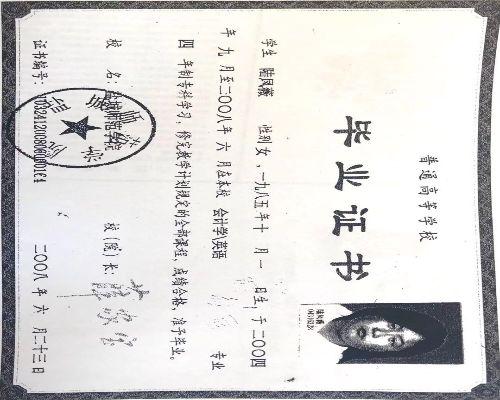 普通高等学校
毕业证书
学生 陆凤薇 性别女，一九八五年十月一日生，于二〇〇四
年九月至二〇〇八年六月在本校 会计学\英语 专业
四年制专科学习，修完教学计划规定的全部课程，成绩合格，准予毕业。
校 名：盐城师范学院 校（院）长：
证书编号： 二〇〇八年六月二十三日